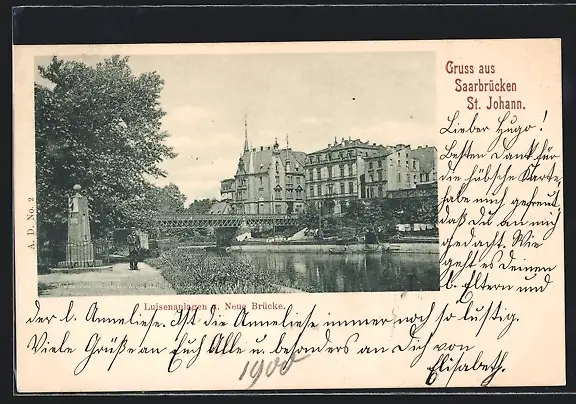 Gruss aus
Saarbrücken
St. Johann.
A. D. No. 2
Luisenanlagen u. Neue Brücke.
Lieber Hugo!
Besten Dank für
die hübsche Karte
habe mich gefreut
daß du an mich
gedacht. Wie
geht es Deinen
l. Eltern und
der l. Anneliese. Ist die Anneliese immer noch so lustig.
Viele Grüße an Euch Alle u. besonders an Dich von
Elisabeth.
1900